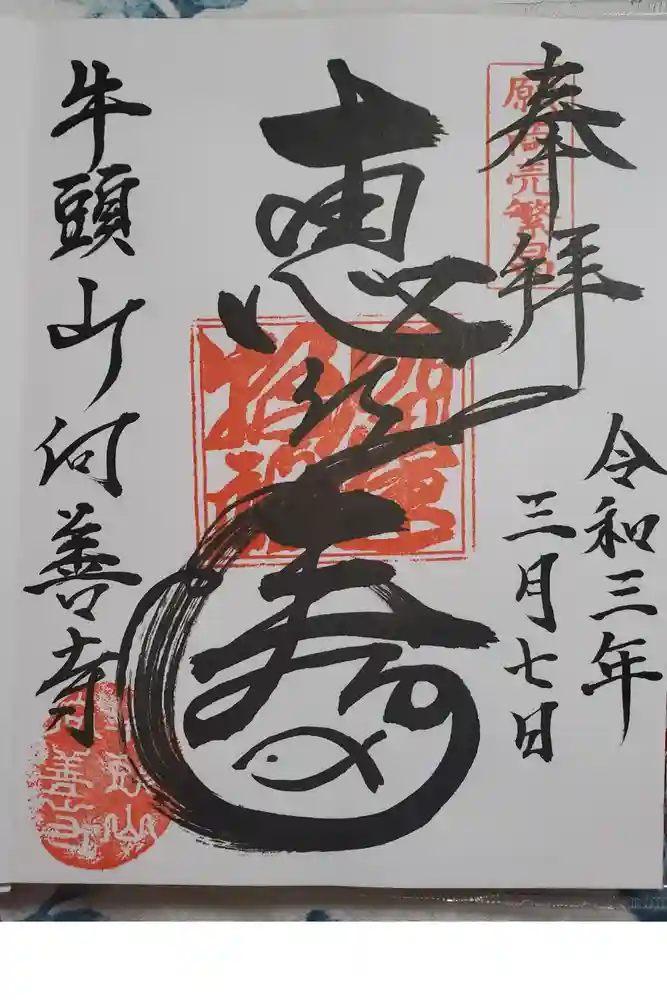 奉拝
願商売繁昌
令和三年
三月七日
恵比寿
招福
牛頭山何善寺